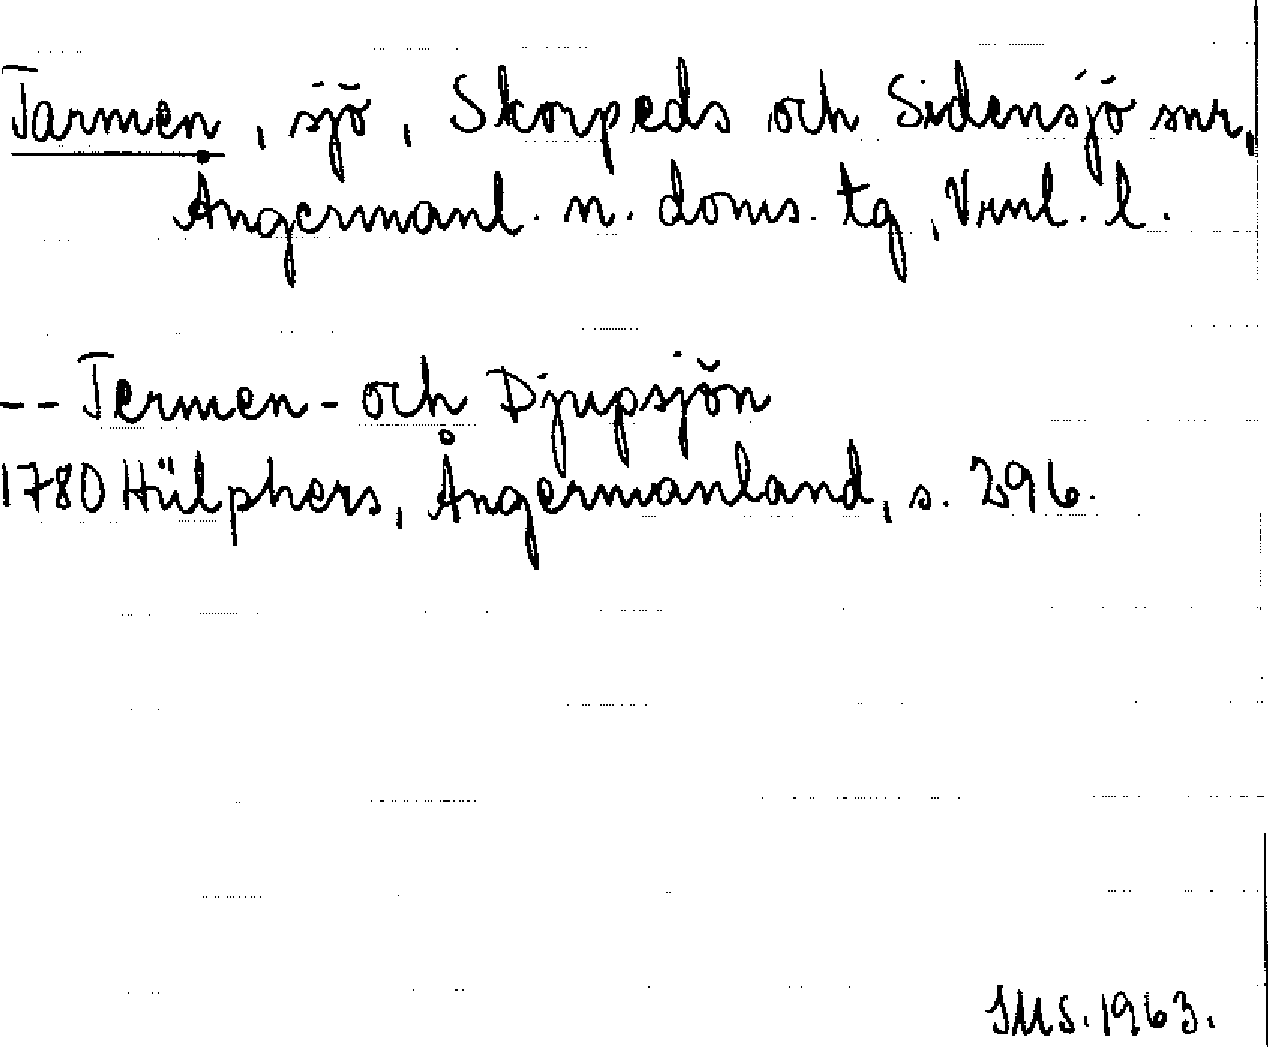 Tarmen, sjö, Skorpeds och Sidensjö snr,
Ångermanl. n. doms. tg, Vrnl. l.
-- Termen- och Djupsjön
1780 Hülphers, Ångermanland, s. 296.
IMS. 1963.